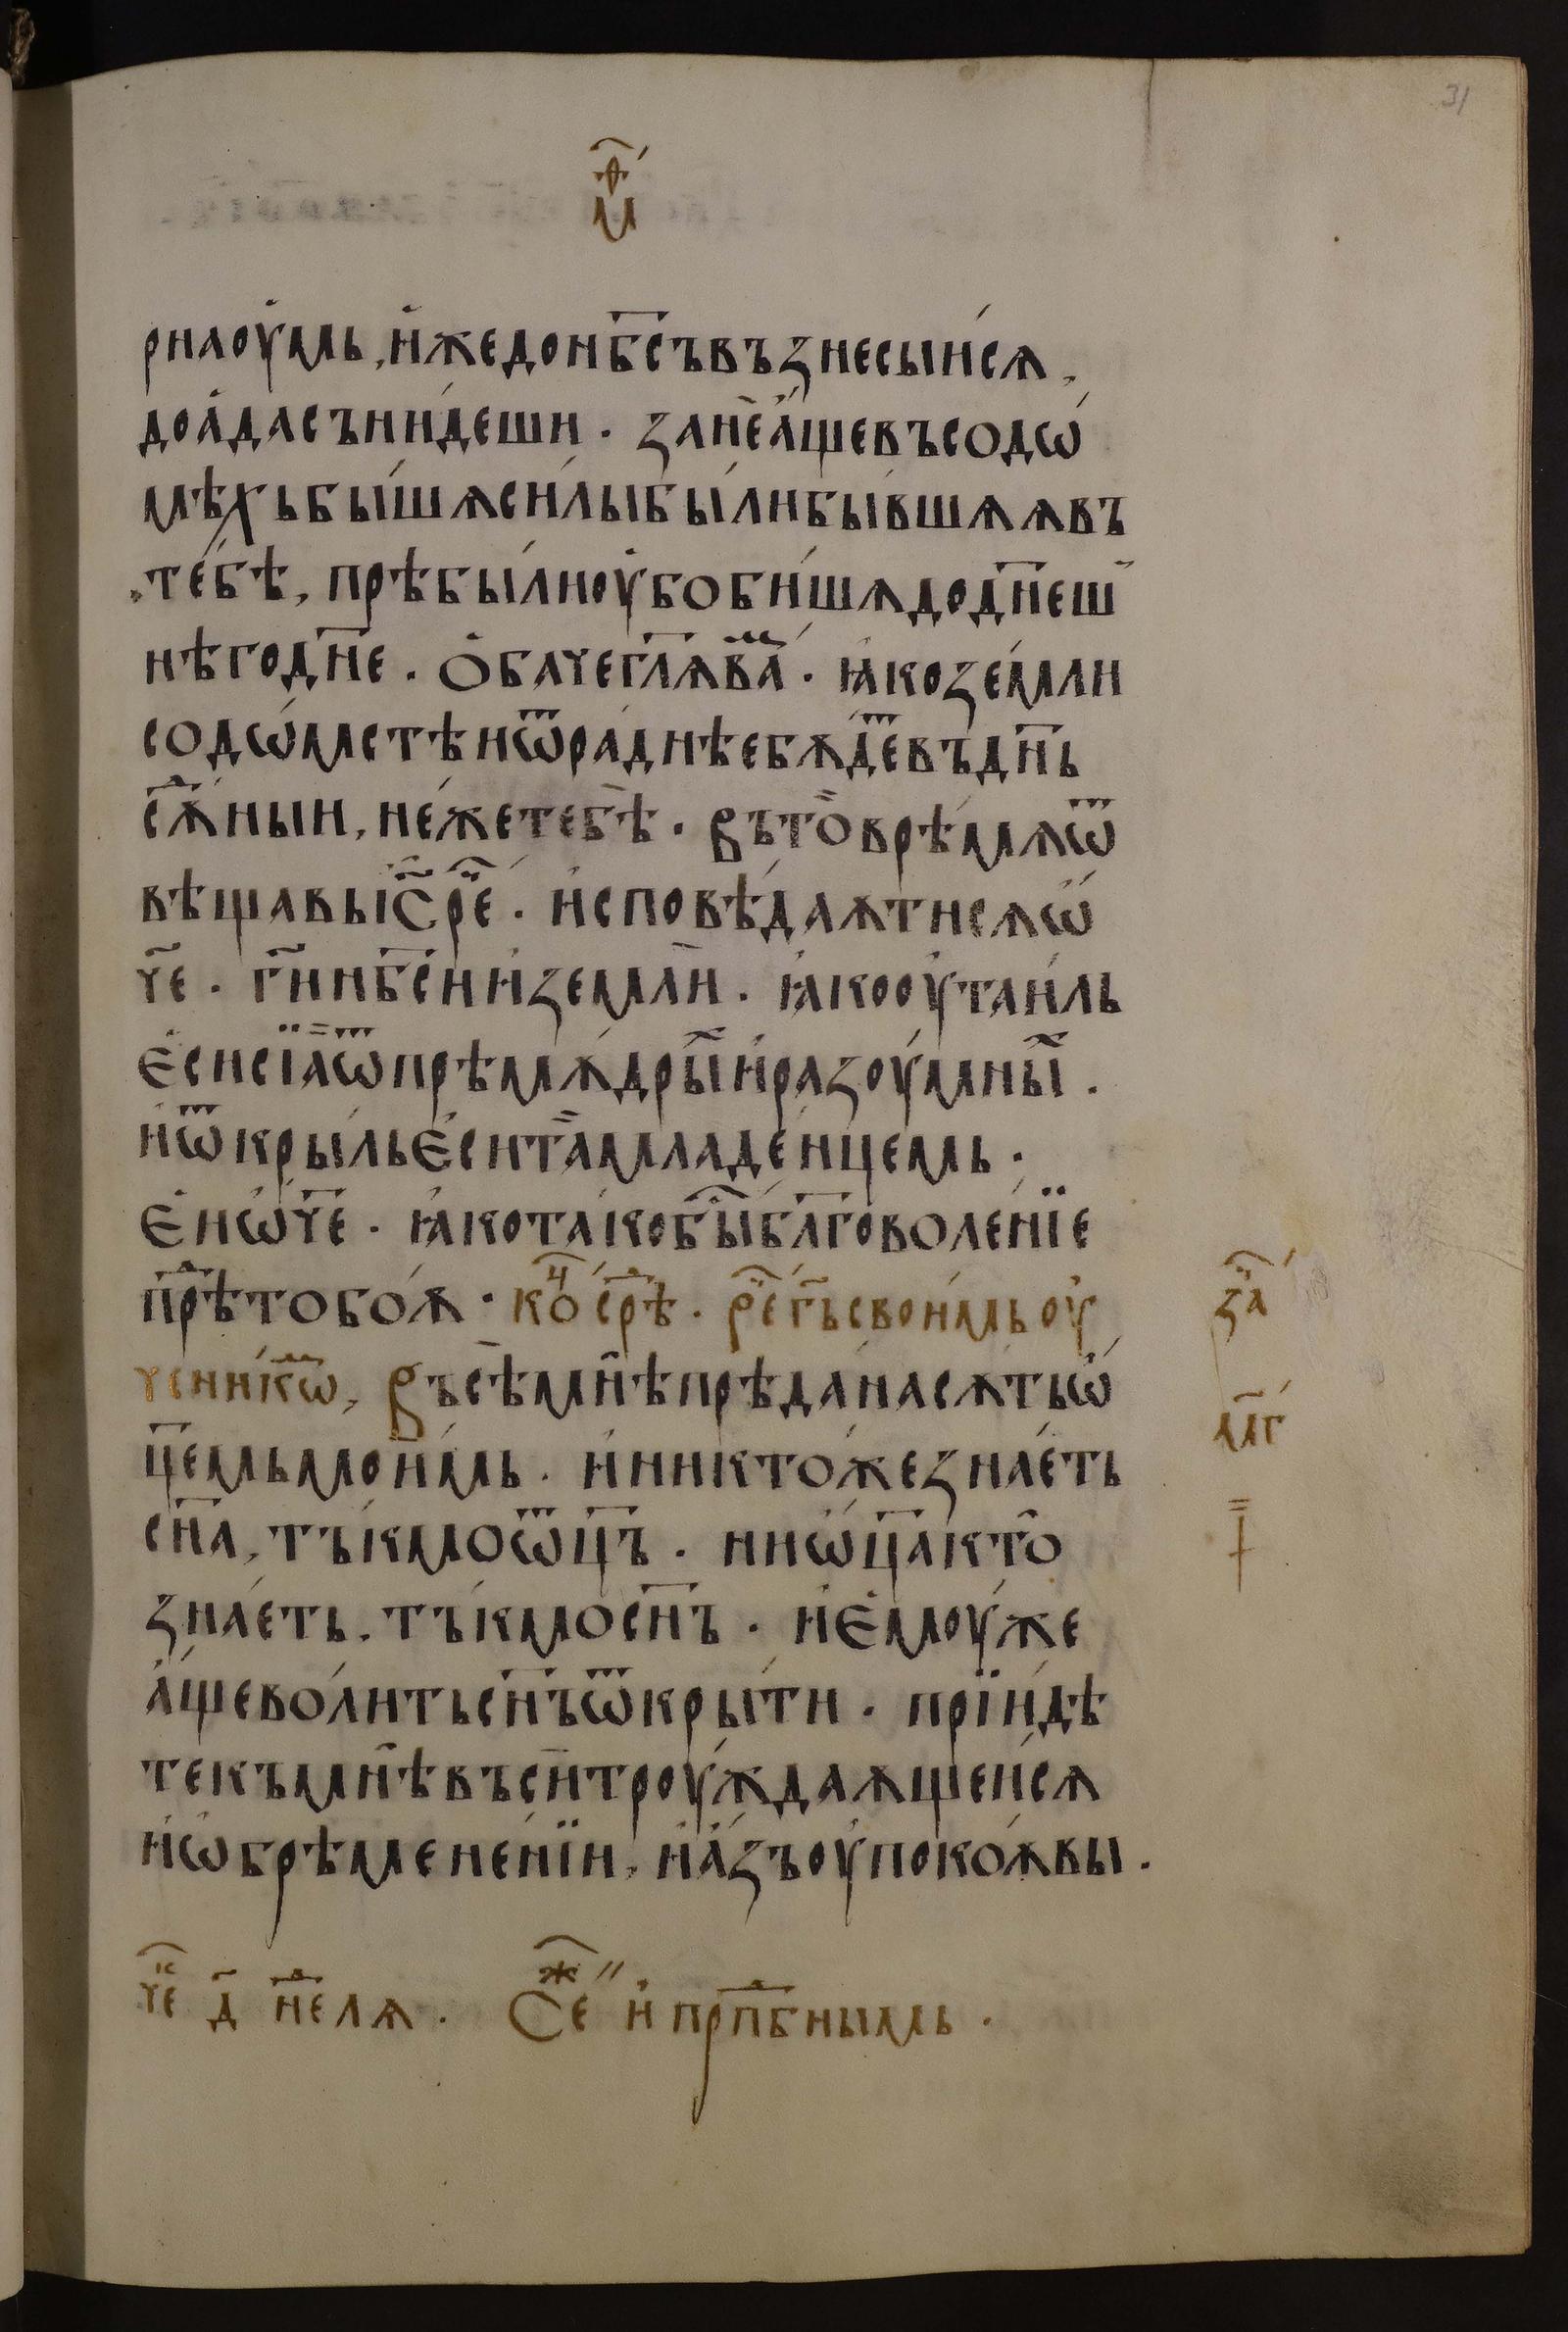 31
м҃ѳ
рнаоумь, иже до нб҃съ възнесыисѧ,
до ада сънидеши · зане аще въ содѡ
мѣхь бышѧ силы были бывшѧѧ въ
тебѣ, прѣбыли оубо бишѧ до дн҃еш
нѣго дн҃е · Обаче гл҃ѧ ваⷨ · ꙗко земли
содѡмстѣи ѿраднѣе бѫдеⷮ въ дн҃ь
сѫⷣныи, неже тебѣ · Въ то врѣмѧ ѿ
вѣщавы І҃с реⷱ · исповѣдаѫтисѧ ѡ
ч҃е · г҃и нб҃си и земли · ꙗко оутаиль
еси сіа ѿ прѣмѫдрыⷯ и разоумныⷯ ·
и ѿкрыль еси та младенцемь ·
Еи ѡч҃е · ꙗко тако быⷭ бл҃говоленїе
прѣⷣ тобоѫ · коⷰ҇ среⷣѣ · реⷱ г҃ь своимь оу
ченикѡⷨ, Въсѣ мнѣ прѣдана сѫть ѡ
ц҃емь моимь · и никтоже знаеть
сн҃а, тъкмо ѿц҃ъ · ни ѡц҃а кто
знаеть, тъкмо сн҃ъ · и емоуже
аще волить сн҃ъ ѿкрыти · прїидѣ
те къ мнѣ въси троуждаѫщеисѧ
и ѡбрѣмененїи, и азъ оупокоѫ вы ·
заⷱ
м҃г
чеⷭ д҃ неⷣлѧ · Сеⷤ и прпⷣбнымь ·